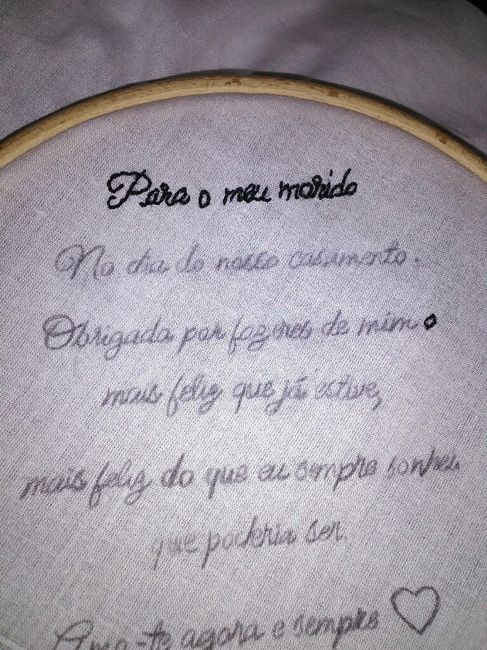 Para o meu marido
No dia do nosso casamento.
Obrigada por fazeres de mim o
mais feliz que já estive,
mais feliz do que eu sempre sonhei
que poderia ser.
Amo-te agora e sempre